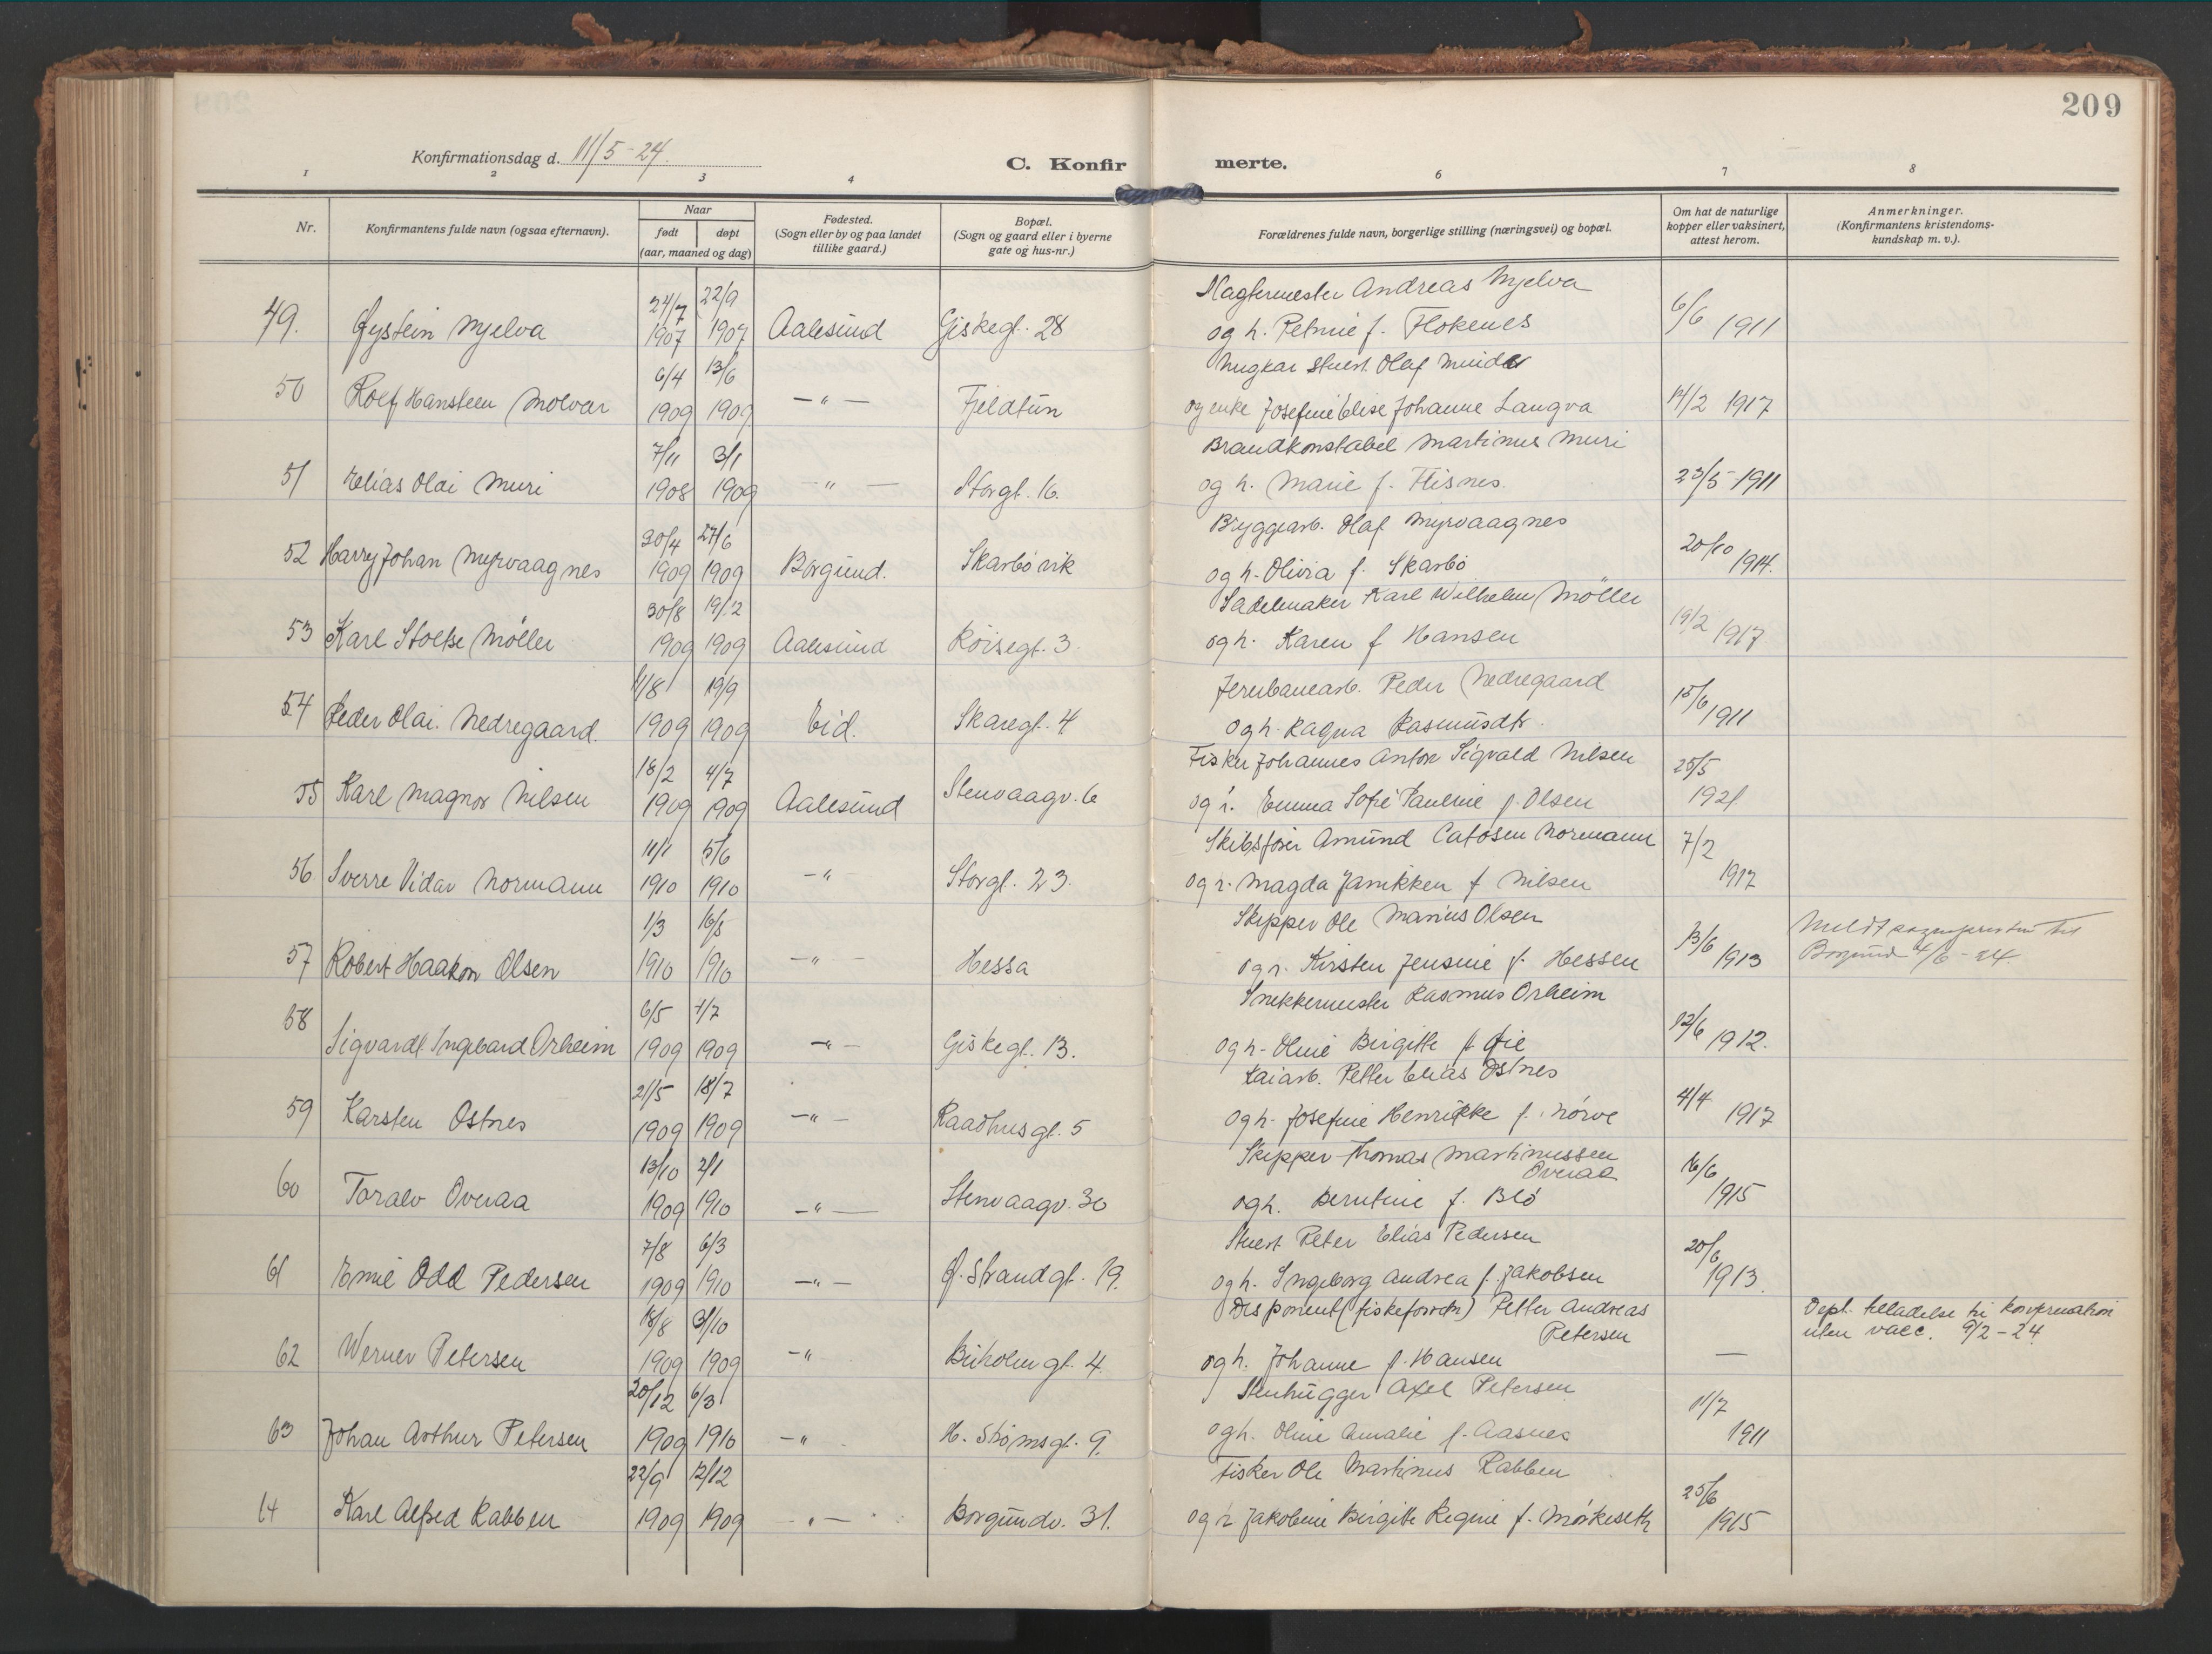 209
Konfirmationsdag d. 11/5-24.
C. Konfir merte.
1 2 3 4 6 7 8
Nr.
Konfirmantens fulde navn (ogsaa efternavn).
Naar
født døpt
(aar, maaned og dag)
Fødested.
(Sogn eller by og paa landet
tillike gaard.)
Bopæl.
(Sogn og gaard eller i byerne
gate og hus-nr.)
Forældrenes fulde navn, borgerlige stilling (næringsvei) og bopæl.
Om hat de naturlige
kopper eller vaksinert,
attest herom.
Anmerkninger.
(Konfirmantens kristendoms-
kundskap m. v.).
24/7 22/9 Andreas Mjelva
49. Øystein Mjelva 1907 1907 Aalesund Giskegt. 28 og h. Petrine f. Flokenes 6/6 1911
6/4 13/6 Ungkar Stuert Olaf
50 Rolf Hansteen Molvær 1909 1909 —"— Fjeldtun og enke Josefine Elise Johanne Langva 14/2 1917
7/11 3/1 Brandkonstabel Martinus Muri
51 Elias Olai Muri 1908 1909 —"— Storgt. 16. og h. Marie f. Flisnes. 23/5-1911
30/4 27/6 Bryggearb. Olaf Myrvaagnes
52 Harry Johan Myrvaagnes 1909 1909 Borgund. Skarbövik og h. Olivia f. Skarbö 20/10 1914.
30/8 19/12 Sadelmaker Karl Wilhelm Möller
53 Karl Stoltse Möller 1909 1909 Aalesund Röisegt. 3. og h. Karen f Hansen 19/2 1917
11/8 19/9 Jernbanearb. Peder Nedregaard
54 Peder Olai Nedregaard. 1909 1909 Eid. Skaregt. 4 og h. Ragna Rasmusdtr. 15/6 1911
18/2 4/7 Fisker Johannes Anton Sigvald Nilsen 25/5
55 Karl Magnor Nilsen 1909 1909 Aalesund Stenvaagv. 6 og h. Emma Sofie Pauline f. Olsen 1921
11/1 5/6 Skibsförer Amund Catosen Normann 7/2
56 Sverre Vidar Normann 1910 1910 —"— Storgt. 23. og h. Magda Janikken f Nilsen 1917
1/3 16/5 Skipper Ole Marius Olsen
57 Robert Haakon Olsen 1910 1910 —"— Hessa og h. Kirsten Jensine f. Hessen 13/6 1913 Meldt sognepresten til
Borgund 4/6-24.
6/5 4/7 Snekkermester Rasmus Orheim
58 Sigvard Ingvard Orheim 1909 1909 —"— Giskegt. 13. og h. Oline Birgitte f. Øie 12/6 1912.
21/5 18/7 Kaiarb. Petter Elias Ostnes
59 Karsten Ostnes 1909 1909 —"— Raadhusgt. 5 og h. Josefine Henrikke f. Nörve 4/4 1917
13/10 2/1 Skipper Thomas Martinussen
Overaa
60 Toralv Overaa 1909 1910 —"— Stenvaagv. 30 og h. Berntine f. Blö 16/6 1915
7/8 6/3 Stuert Peter Elias Pedersen
61 Emil Odd Pedersen 1909 1910 —"— Ø. Strandgt. 19. og h. Ingeborg Andrea f. Jakobsen 20/6 1913.
18/8 3/10 Disponent (fiskeforretn) Petter Andreas
Petersen
Dept. tilladelse til konfirmation
uten vacc. 9/2-24
62 Werner Petersen 1909 1909 —"— Buholmgt. 4. og h. Johanne f. Hansen —
20/12 6/3 Stenhugger Axel Petersen
63 Johan Arthur Petersen 1909 1910 —"— H. Strömsgt. 9. og h. Oline Amalie f. Aasnes 11/7 1911
22/9 12/12 Fisker Ole Martinus Rabben
64 Karl Alfred Rabben 1909 1909 —"— Borgundv. 31. og h. Jakobine Birgitte Regine f. Mörkeseth 25/6 1915